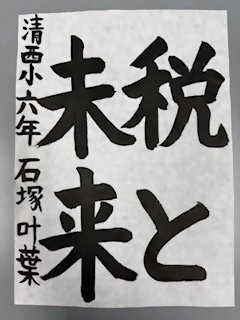 税と
未来
清西小六年 石塚叶葉